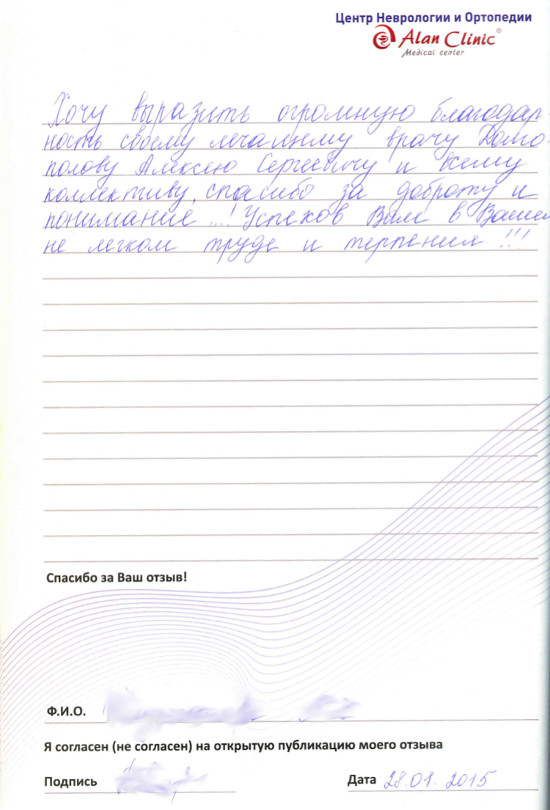 Центр Неврологии и Ортопедии
Alan Clinic®
Medical center
Хочу выразить огромную благодар-
ность своему лечащему врачу Домо-
полову Алексею Сергеевичу и всему
коллективу, спасибо за доброту и
понимание...! Успехов Вам в Вашем
не легком труде и терпения!!!
Спасибо за Ваш отзыв!
Ф.И.О.
Я согласен (не согласен) на открытую публикацию моего отзыва
Подпись
Дата 28.01.2015